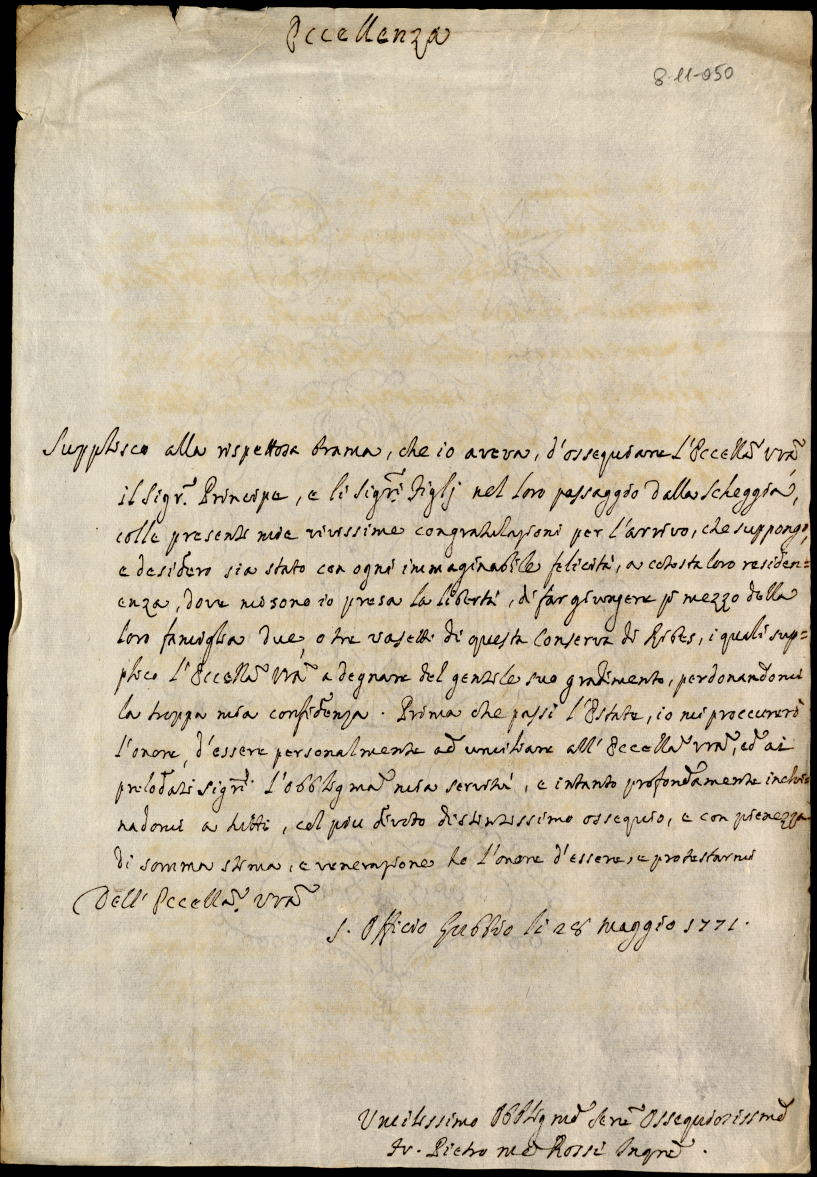 Eccellenza
8-11-950
Supplisco alla rispettosa brama, che io aveva, d'ossequiare l'Eccellã vrã
il Sigr. Principe, e li Sigri Figlj nel loro passaggio dalla Scheggia,
colle presenti mie vivissime congratulazioni per l'arrivo, che suppongo,
e desidero sia stato con ogni immaginabile felicità, a cotesta loro residen=
enza, dove mi sono io presa la libertà, di far giungere p mezzo della
loro famiglia due, o tre vasetti di questa Conserva di Ribes, i quali sup=
plico l'Eccellã vrã a degnare del gentile suo gradimento, perdonandomi
la troppa mia confidenza. Prima che passi l'Estate, io mi proccurerò
l'onore, d'essere personalmente ad umiliare all'Eccellã vrã, ed ai
prelodati Sigri l'obbligmã mia servitù, e intanto profondamente inchi=
nadomi a tutti, col più divoto distintissimo ossequio, e con pienezza
di somma stima, e venerazione ho l'onore d'essere, e protestarmi
Dell'Eccellã vrã
S. Officio Gubbio li 28 Maggio 1771.
Umilissimo Obbligmo Serẽ Ossequiosissmo
Fr. Pietro Mã Rossi Inqrẽ.